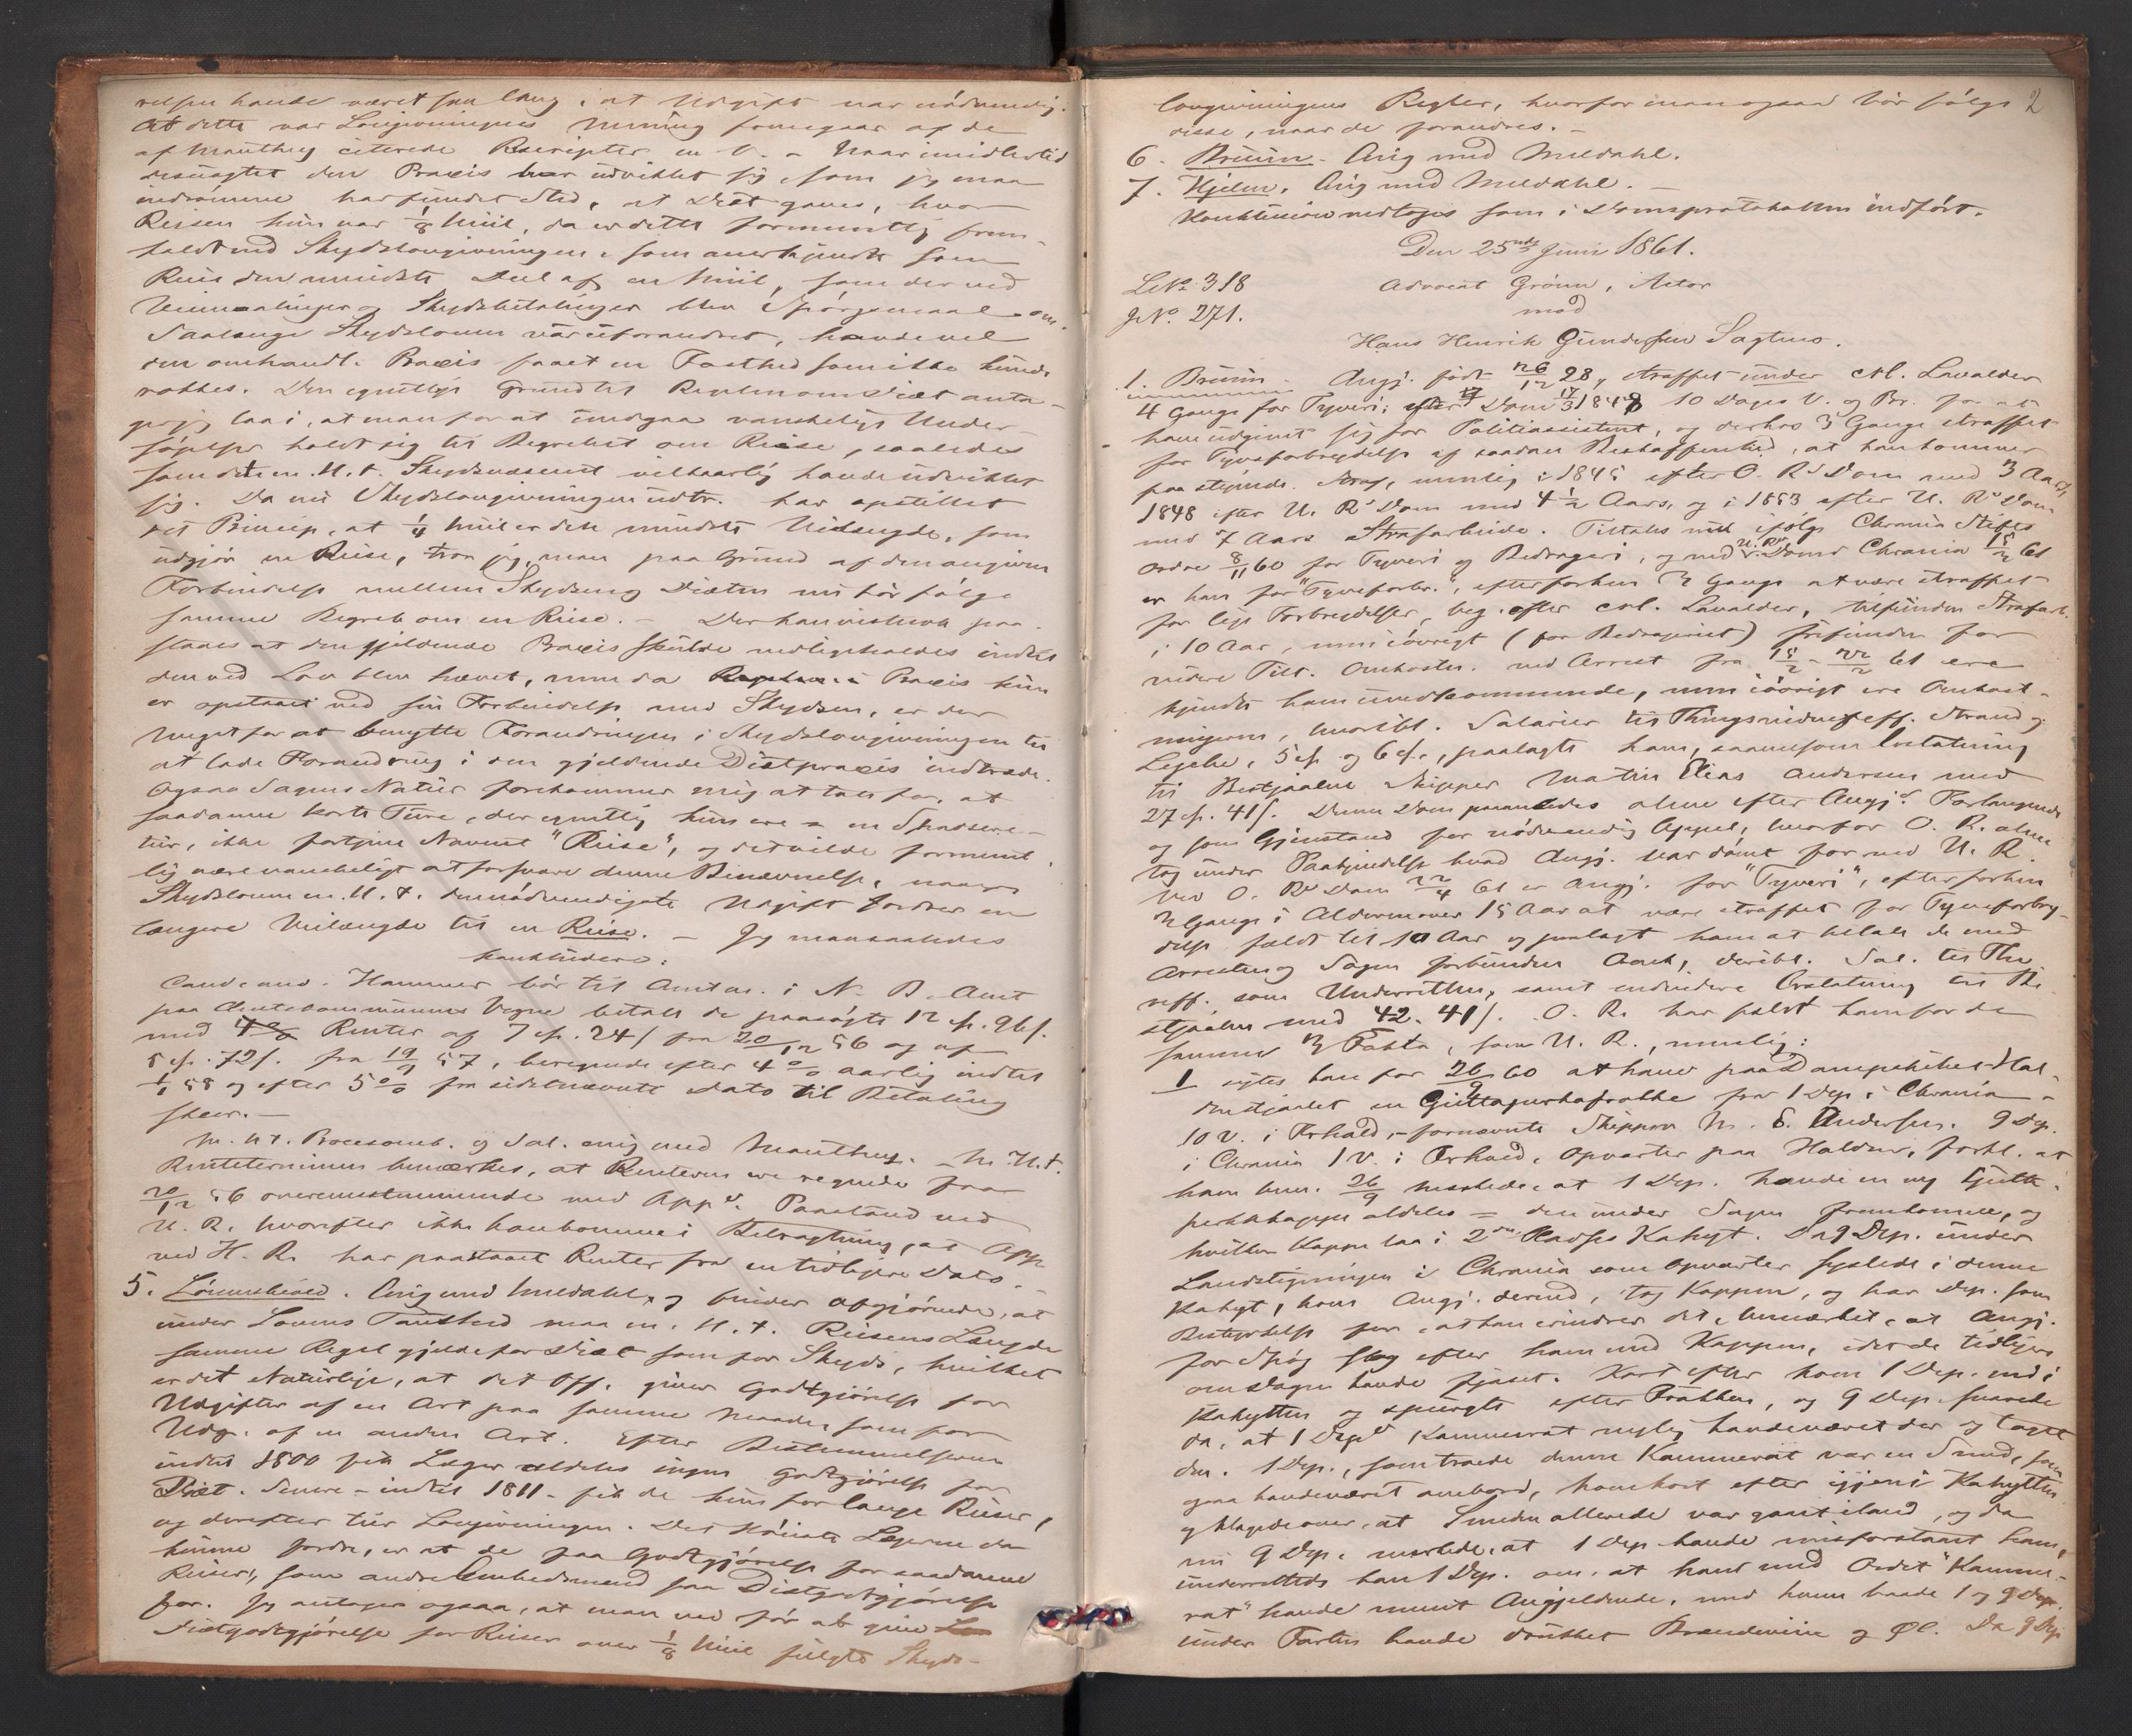 velsen havde været saa lang, at Udgift var nødvendig.
At dette var Lovgivningens Mening fremgaar af de
af Manthey citerede Rescripter m. V. – Naar imidlertid
desuagtet den Praxis har udviklet sig, som jeg maa
indrømme har fundet Sted, at Diæt gaves, hvor
Reisen kun var 1/8 Miil, da er dette formentlig frem-
kaldt ved Skydslovgivningen, som anerkjendte som
Reise den mindste Deel af en Miil, som der ved
Veimaalinger og Skydsbetalinger blev Spørgsmaal om.
Saalænge Skydsloven var uforandret, havde vel
den omhandl. Praxis faaet en Fasthed som ikke kunde
rokkes. Den egentlige Grund til Reglen om Diæt anta-
ger jeg laa i, at man for at undgaa vanskelige Under-
søgelser holdt sig til Begrebet om Reise, saaledes
som dette m. H. t. Skydsvæsenet vilkaarlig havde udviklet
sig. Da nu Skydslovgivningen udtr. har opstillet
det Princip, at 1/4 Miil er den mindste Veilængde, som
udgjør en Reise, tror jeg, man paa Grund af den angivne
Forbindelse mellem Skyds og Diæten nu bør følge
samme Begreb om en Reise. – Der kan vistnok paa-
staaes at den gjeldende Praxis skulde vedligeholdes indtil
den ved Lov blev hævet, men da Reglen i Praxis kun
er opstaaet ved sin Forbindelse med Skydsen, er der
Meget for at benytte Forandringen i Skydslovgivningen til
at lade Forandring i den gjeldende Diætpraxis indtræde.
Ogsaa Sagens Natur forekommer mig at tale for, at
saadanne korte Ture, der egentlig kun ere en Spadsere-
tur, ikke fortjene Navnet "Reise", og det vilde forment-
lig være vanskeligt at forsvare denne Benævnelse, naar
Skydsloven m. H. t. den nødvendigste Udgift fordrer en
længere Veilængde til en Reise. – Jeg maa saaledes
konkludere:
Cand. med. Hammer bør til Amtm. i N. B. Amt
paa Amtskommunens Vegne betale de paasøgte 12 Sp. 96 s.
med Renter af 7 Sp. 24 s fra 20/12 56 og af
5 Sp. 72 s. fra 19/ 57, beregnede efter 4 % aarlig indtil
1/1 58 og efter 5 % fra sidstnævnte Dato til Betaling
skeer. –
M. H. t. Procesomk. og Sal. enig med Manthey. – M. H. t.
Renteterminen bemærkes, at Renterne ere regnede fra
20/12 56 overensstemmende med App.s Paastand ved
U. R. hvorefter ikke kan komme i Betragtning, at App.
ved H. R. har paastaaet Renter fra en tidligere Dato.
5. Lövenskiold. Enig med Meldahl, og finder afgjørende, at
under Lovens Taushed maa m. H. t. Reisens Længde
samme Regel gjelde for Diæt som for Skyds, hvilket
er det Naturlige, at det Off. giver Godtgjørelse for
Udgifter af en Art paa samme Maade, som for
Udg. af en anden Art. Efter Bestemmelserne
indtil 1800 fik Læger aldeles ingen Godtgjørelse for
Diæt. Senere – indtil 1811 – fik de kun for lange Reiser,
og derefter tier Lovgivningen. Det Høieste Lægerne da
kunne fordre, er at de faa Godtgjørelse for saadanne
Reiser, som andre Embedsmænd faa Diætgodtgjørelse
for. Jeg antager ogsaa, at man ved før at give
Diætgodtgjørelse for Reiser over 1/8 Miil fulgte Skyds-
2
lovgivningens Regler, hvorfor man ogsaa bör fölge
disse, naar de forandres. –
6. Bruun. Enig med Meldahl.
7. Hjelm. Enig med Meldahl. –
Konklusion vedtoges som i Domsprotokollen indført.
Den 25nde Juni 1861.
L.No 318 Advocat Grönn, Actor
g.No. 271. mod
Hans Henrik Gundersen Sagmo.
1. Bruun. Angj. født 26/12 28, straffet under crl. Lavalder
4 Gange for Tyveri; efter Dom 17/3 1848 10 Dages V. og Br. for at
have udgivet sig for Politiassistent, og derhos 3 Gange straffet
for Tyvsforbrydelse af saadan Beskaffenhed, at han kommer
paa stigende Straf, nemlig i 1845 efter O. Rs Dom med 3 Aars,
1848 efter U. Rs Dom med 4 1/2 Aars, og i 1853 efter U. Rs Dom
med 7 Aars Strafarbeide. Tiltales nu ifölge Chrania Stifts
Ordre 8/11 60 for Tyveri og Bedrageri, og ved U. Rs Dom Chrania 15/2 61
er han for "Tyveforbr.", efter forhen 3 Gange at være straffet
for lige Forbrydelser, beg. efter crl. Lavalder, tilfunden Strafarb.
i 10 Aar, men iövrigt (for Bedrageriet) frifunden for
videre Tilt. Omkostn. ved Arrest fra 15/2 – 22/2 61 ere
kjendte ham uvedkommende, men iövrigt ere Omkost-
ningerne, hvoribl. Salarier til Thingsvidneff. Strand og
Lasche, 5 Sp. og 6 Sp., paalagte ham, saavelsom Erstatning
til Bestjaalne Skipper Martin Elias Andersen med
27 Sp. 41 s. Denne Dom paaankedes alene efter Angj.s Forlangende
og som Gjenstand for nödvendig Appel, hvorfor O. R. alene
tog under Paakjendelse hvad Angj. var dömt for ved U. R.
Ved O. Rs Dom 22/4 61 er Angj. for "Tyveri", efter forhen
3 Gange i Alderen over 15 Aar at være straffet for Tyveforbry-
delse fældt til 10 Aar og paalagt ham at betale de med
Arresten og Sagen forbundne Omk., deribl. Sal. til Thv
reff. som Underretten, samt endvidere Erstatning til Be-
stjaalne med 42. 41 s. O. R. har fældt ham for de
samme 3 Fakta, som U. R., nemlig:
1 sigtes han for 26/9 60 at have paa Dampskibet Hal-
den stjaalet en Guttaperkafrakke fra 1 Dep. i Chrania –
10 V. i Frhald, – fornævnte Skipper M. E. Andersen. 9 Dep.
i Chrania 1 V. i Frhald, Opvarter paa Halden, forkl. at
han bem. 26/9 bemærkede, at 1 Dep. havde en ny Gutta-
perkakappe aldeles = den under Sagen fremkomne, og
hvilken Kappe laa i 2den Plads Kahyt. Da 9 Dep. under
Landstigningen i Chrania som Opvarter sysslede i denne
Kahyt, kom Angj. derind, tog Kappen, og har Dep. som
Bestyrkelse for, at han erindrer det, bemærket, at Angj.
for Spög slog efter ham med Kappen, idet de tidligere
om Dagen havde fjaset. Kort efter kom 1 Dep. ned i
Kahytten og spurgte efter Frakken, og 9 Dep. svarede
da, at 1 Deps Kammerat nylig havde været der og taget
den. 1 Dep., som troede denne Kammerat var en Smed, som
ogsaa havde været ombord, kom kort efter igjen i Kahytten
og klagede over, at Smeden allerede var gaaet iland, og da
nu 9 Dep. mærkede, at 1 Dep. havde misforstaaet ham,
underrettede han 1 Dep. om, at han med Ordet "Kamme-
rat" havde meent Angjeldende, med hvem baade 1 og 9 Dep.
under Farten havde drukket Brændeviin og Øl. Da 9 Dep.